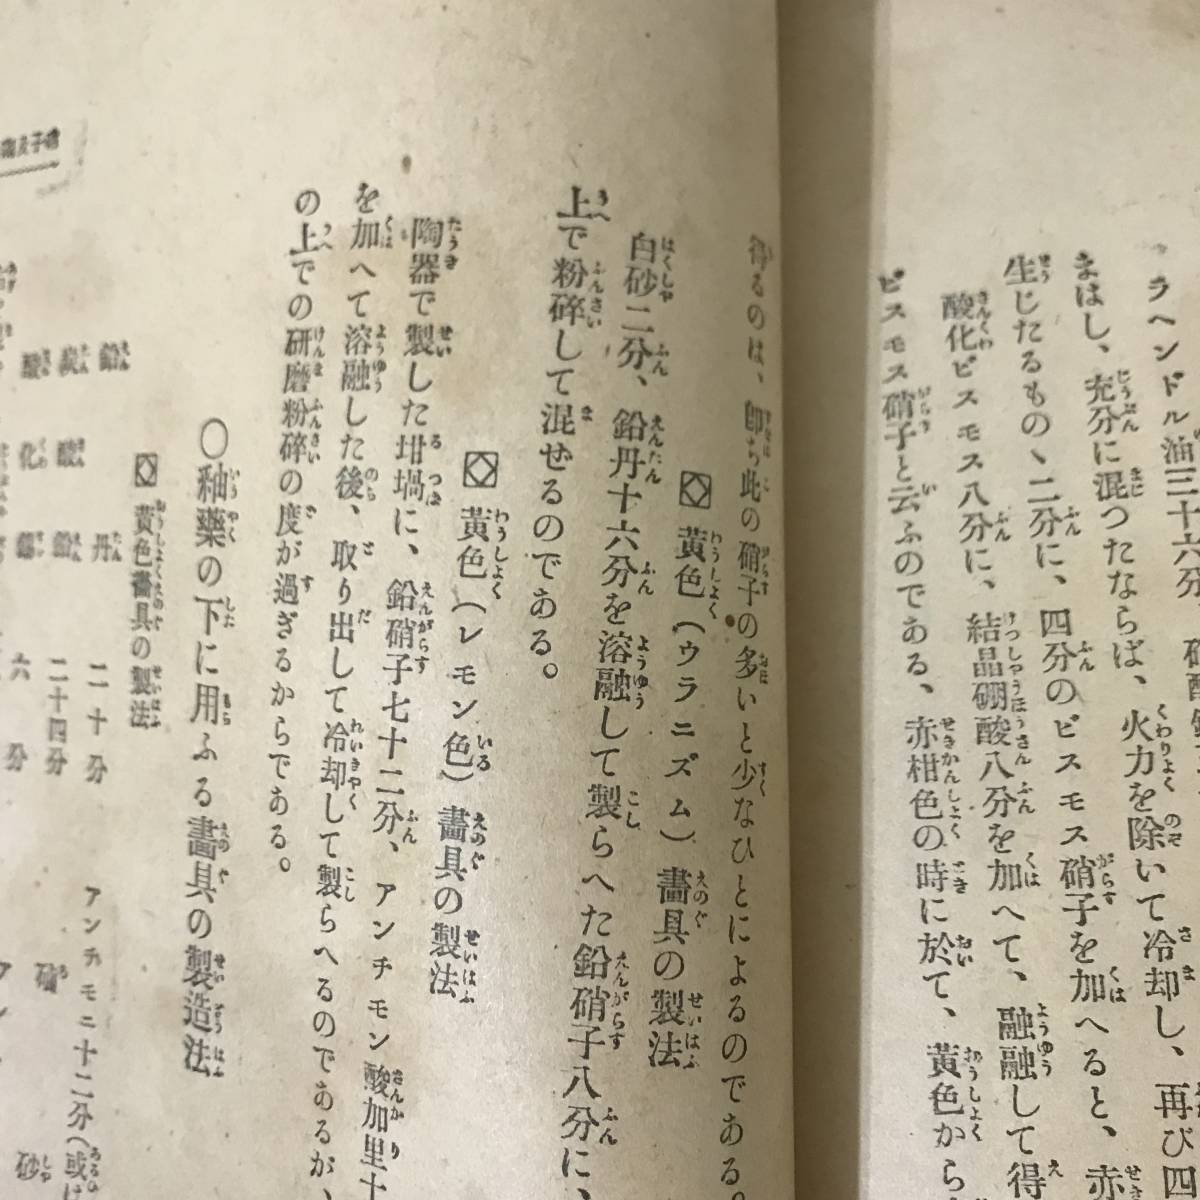 ラヘンドル油三十六分
まはし、充分に混つたならば、火力を除いて冷却し、再び四
生じたるもの、二分に、四分のビスモス硝子を加へると、赤
酸化ビスモス八分に、結晶硼酸八分を加へて、融融して得
ビスモス硝子と云ふのである、赤柑色の時に於て、黄色か
得るのは、卽ち此の硝子の多いと少なひとによるのである。
黄色(ウラニズム)畵具の製法
白砂二分、鉛丹十六分を溶融して製らへた鉛硝子八分に、
上で粉碎して混ぜるのである。
黄色(レモン色)畵具の製法
陶器で製した坩堝に、鉛硝子七十二分、アンチモン酸加里十
を加へて溶融した後、取り出して冷却して製らへるのであるが、
の上での研磨粉碎の度が過ぎるからである。
〇釉藥の下に用ふる畵具の製造法
黄色畵具の製法
鉛丹 二十分 アンチモニ十二分(或は
炭酸鉛 二十四分
酸化錫 六分